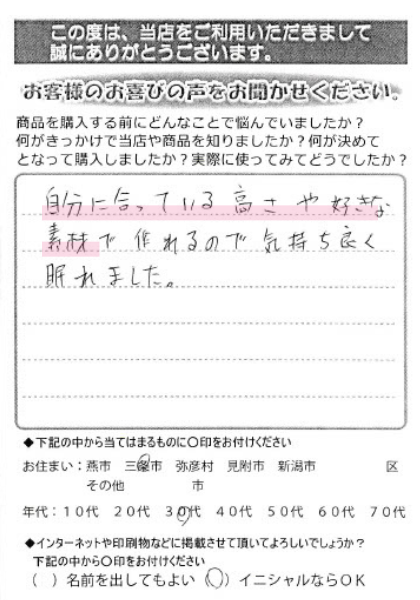 この度は、当店をご利用いただきまして
誠にありがとうございます。
お客様のお喜びの声をお聞かせください。
商品を購入する前にどんなことで悩んでいましたか？
何がきっかけで当店や商品を知りましたか？何が決めて
となって購入しましたか？実際に使ってみてどうでしたか？
自分に合っている高さや好きな
素材で作れるので気持ち良く
眠れました。
◆下記の中から当てはまるものに〇印をお付けください
お住まい：燕市 三条市 弥彦村 見附市 新潟市 区
その他 市
年代：10代 20代 30代 40代 50代 60代 70代
◆インターネットや印刷物などに掲載させて頂いてよろしいでしょうか？
下記の中から〇印をお付けください
（ ）名前を出してもよい （〇）イニシャルならOK